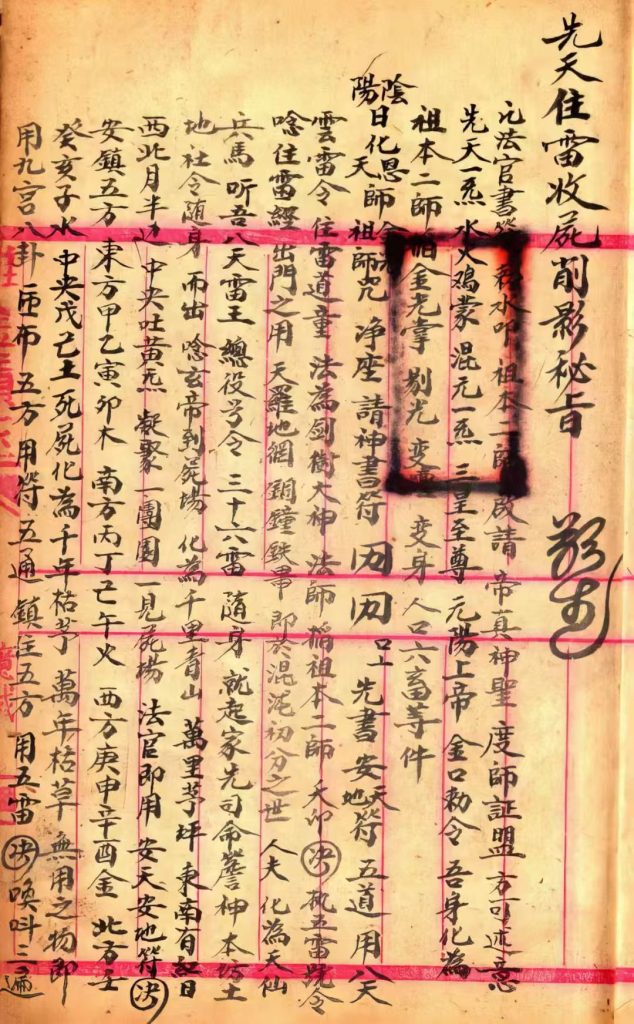 先天住雷收屍削影秘旨
凡法官書符 水叩祖本二師啟請帝真神聖度師証盟方可述意
先天一炁水火鴻蒙混元一炁三皇至尊元陽上帝金口勅令吾身化為
祖本二師 金光掌 变身人口六畜等件
陰陽日化恩
天師祖師咒净座請神書符 先書安天地符五道用八天
雲雷令住雷道童法為劍樹大神法師稱祖本二師天印決 五雷號令
唸住雷經出門之用天羅地網銅鐘鉄 即於混沌初分之世人夫化為天仙
兵馬听吾八天雷王總役号令三十六雷隨身就起家先司命 神本坊土
地社令隨身而出唸玄帝到屍場化為千里青山萬里茅坪東南有紅日
西北月半边中央吐黃炁凝聚一團圓一見屍場法官即用安天安地符決
安鎮五方東方甲乙寅卯木南方丙丁巳午火西方庚申辛酉金北方壬
癸亥子水中央戊己土死屍化為千年枯茅萬年枯草無用之物即
用九宮八卦匝布五方用符五通鎮住五方用五雷決喚叫三遍